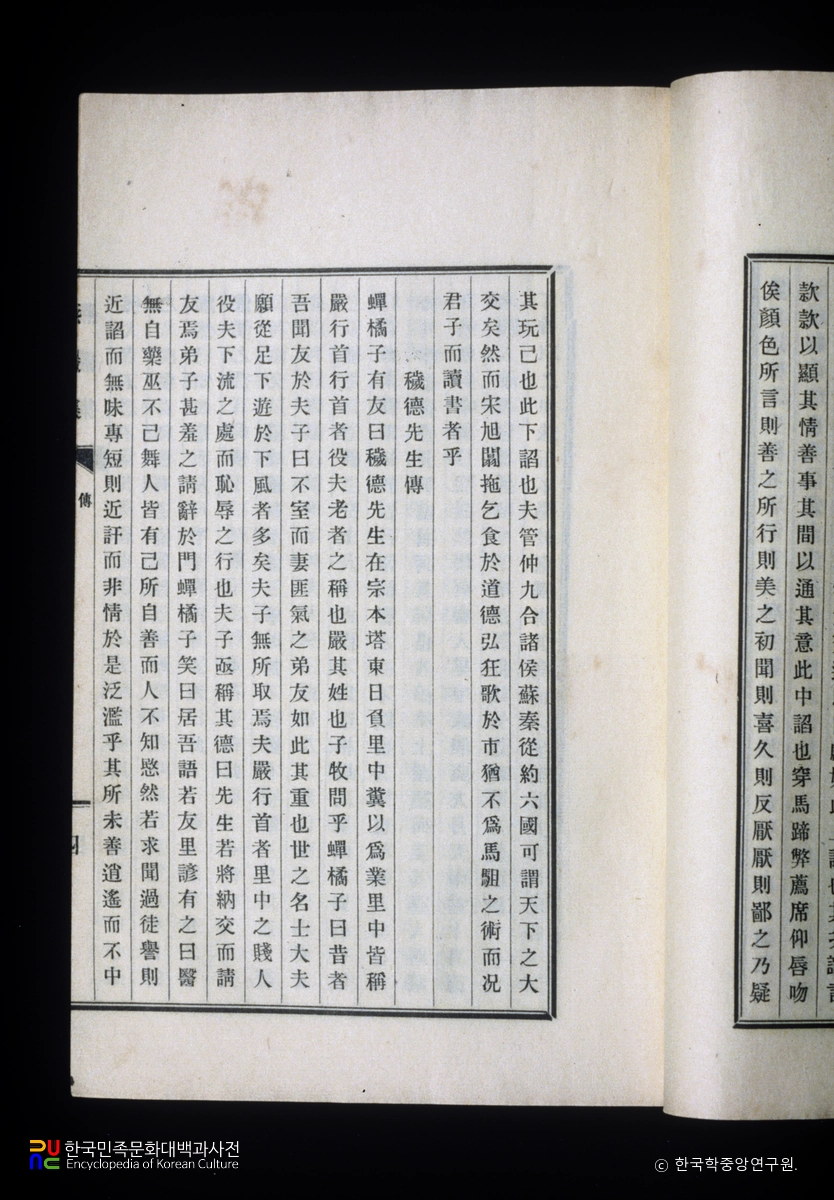 款款以顯其情善事其間以通其意此中諂也穿馬蹄弊薦席仰唇吻
俟顏色所言則善之所行則美之初聞則喜久則反厭厭則鄙之乃疑
其玩己也此下諂也夫管仲九合諸侯蘇秦從約六國可謂天下之大
交矣然而宋旭闟拖乞食於道德弘狂歌於市猶不爲馬駔之術而况
君子而讀書者乎
穢德先生傳
蟬橘子有友曰穢德先生在宗本塔東日負里中糞以爲業里中皆稱
嚴行首行首者役夫老者之稱也嚴其姓也子牧問乎蟬橘子曰昔者
吾聞友於夫子曰不室而妻匪氣之弟友如此其重也世之名士大夫
願從足下遊於下風者多矣夫子無所取焉夫嚴行首者里中之賤人
役夫下流之處而恥辱之行也夫子亟稱其德曰先生若將納交而請
友焉弟子甚羞之請辭於門蟬橘子笑曰居吾語若友里諺有之曰醫
無自藥巫不己舞人皆有己所自善而人不知愍然若求聞過徒譽則
近諂而無味專短則近訐而非情於是泛濫乎其所未善逍遙而不中
傳
한국민족문화대백과사전
Encyclopedia of Korean Culture
ⓒ 한국학중앙연구원.